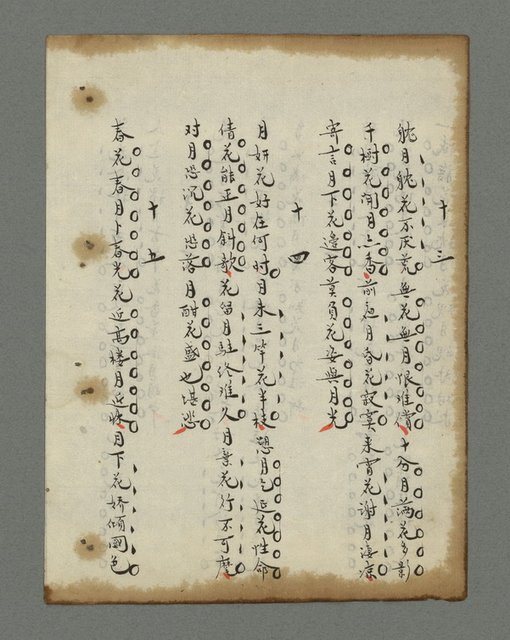 十三
躭月躭花不厌荒無花無月恨难償十分月满花多影
千樹花開月亦香前夜月昏花寂寞来宵花謝月凄凉
寄言月下花邊客莫負花姿與月光
十四
月妍花好在何时月未三竿花半枝想月乞延花性命
倩花能正月斜欹花留月駐终难久月業花行不可麾
对月恐沉花恐落月酣花盛也堪悲
十五
春花春月卜春光花近高楼月近床月下花娇傾國色